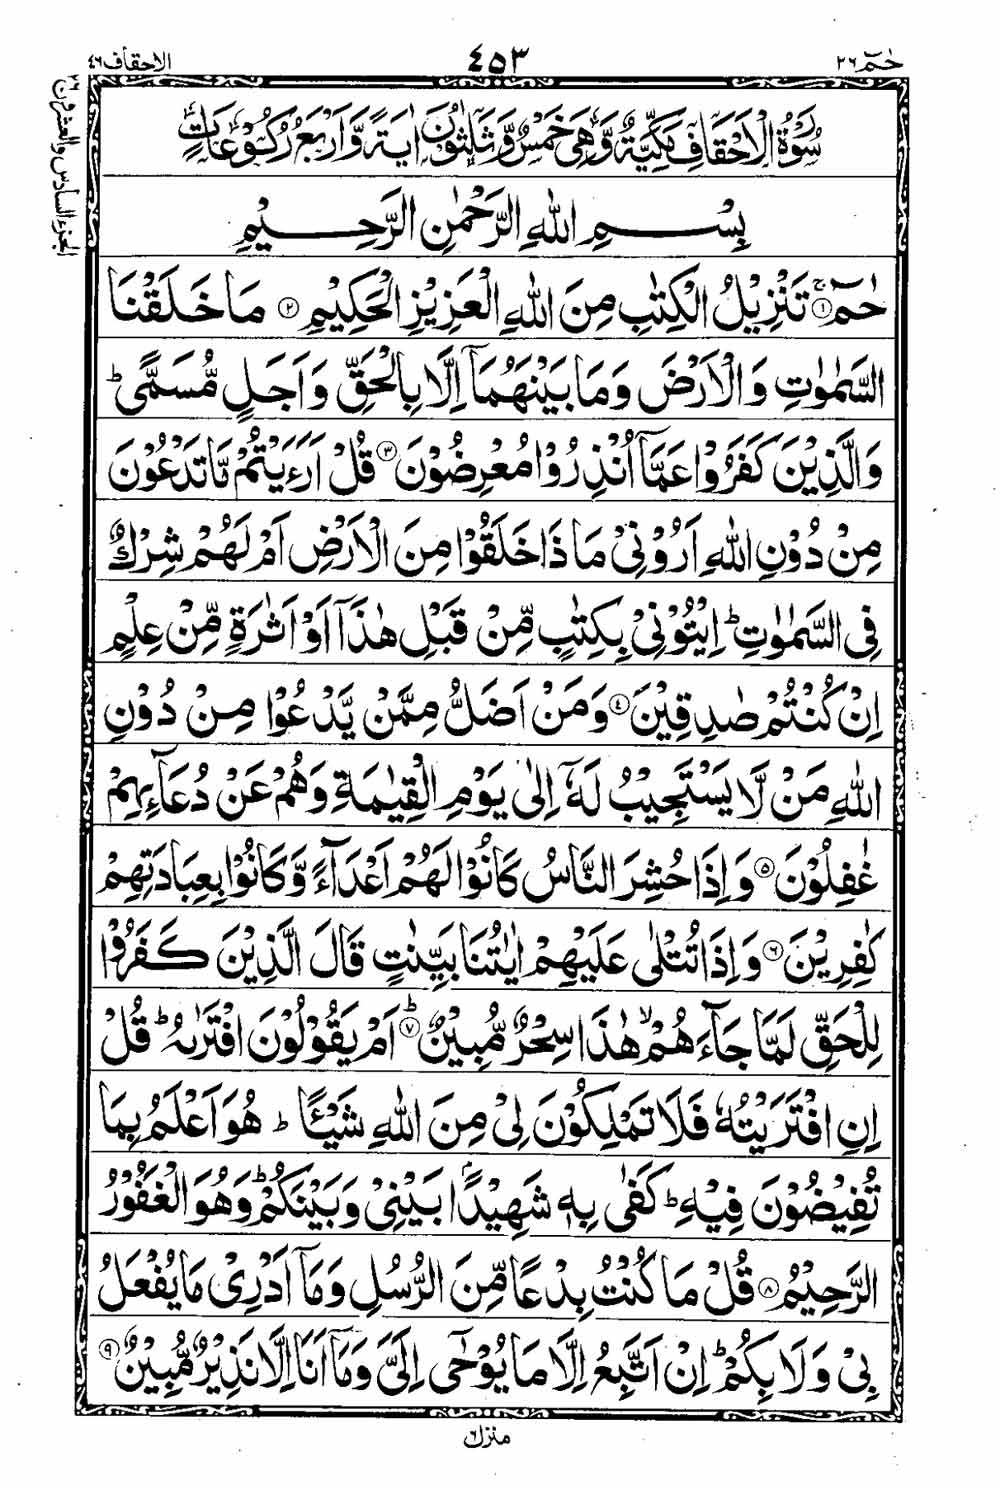 حٰمٓ ٢٦
٤٥٣
الاحقاف ٤٦
الجزء السادس والعشرون ٢٦
سُوْرَةُ الْاَحْقَافِ مَكِّيَّةٌ وَّهِيَ خَمْسٌ وَّثَلٰثُوْنَ اٰيَةً وَّاَرْبَعُ رُكُوْعَاتٍ
بِسْمِ اللّٰهِ الرَّحْمٰنِ الرَّحِيْمِ
حٰمٓ ۚ﴿۱﴾ تَنْزِيْلُ الْكِتٰبِ مِنَ اللّٰهِ الْعَزِيْزِ الْحَكِيْمِ ﴿۲﴾ مَا خَلَقْنَا
السَّمٰوٰتِ وَالْاَرْضَ وَمَا بَيْنَهُمَاۤ اِلَّا بِالْحَقِّ وَاَجَلٍ مُّسَمًّى ؕ
وَالَّذِيْنَ كَفَرُوْا عَمَّاۤ اُنْذِرُوْا مُعْرِضُوْنَ ﴿۳﴾ قُلْ اَرَءَيْتُمْ مَّا تَدْعُوْنَ
مِنْ دُوْنِ اللّٰهِ اَرُوْنِيْ مَاذَا خَلَقُوْا مِنَ الْاَرْضِ اَمْ لَهُمْ شِرْكٌ
فِي السَّمٰوٰتِ ؕ اِيْتُوْنِيْ بِكِتٰبٍ مِّنْ قَبْلِ هٰذَاۤ اَوْ اَثٰرَةٍ مِّنْ عِلْمٍ
اِنْ كُنْتُمْ صٰدِقِيْنَ ﴿۴﴾ وَمَنْ اَضَلُّ مِمَّنْ يَّدْعُوْا مِنْ دُوْنِ
اللّٰهِ مَنْ لَّا يَسْتَجِيْبُ لَهٗۤ اِلٰى يَوْمِ الْقِيٰمَةِ وَهُمْ عَنْ دُعَآءِهِمْ
غٰفِلُوْنَ ﴿۵﴾ وَاِذَا حُشِرَ النَّاسُ كَانُوْا لَهُمْ اَعْدَآءً وَّكَانُوْا بِعِبَادَتِهِمْ
كٰفِرِيْنَ ﴿۶﴾ وَاِذَا تُتْلٰى عَلَيْهِمْ اٰيٰتُنَا بَيِّنٰتٍ قَالَ الَّذِيْنَ كَفَرُوْا
لِلْحَقِّ لَمَّا جَآءَهُمْ ۙ هٰذَا سِحْرٌ مُّبِيْنٌ ﴿۷﴾ؕ اَمْ يَقُوْلُوْنَ افْتَرٰىهُ ؕ قُلْ
اِنِ افْتَرَيْتُهٗ فَلَا تَمْلِكُوْنَ لِيْ مِنَ اللّٰهِ شَيْـًٔا ؕ هُوَ اَعْلَمُ بِمَا
تُفِيْضُوْنَ فِيْهِ ؕ كَفٰى بِهٖ شَهِيْدًۢا بَيْنِيْ وَبَيْنَكُمْ ؕ وَهُوَ الْغَفُوْرُ
الرَّحِيْمُ ﴿۸﴾ قُلْ مَا كُنْتُ بِدْعًا مِّنَ الرُّسُلِ وَمَاۤ اَدْرِيْ مَا يُفْعَلُ
بِيْ وَلَا بِكُمْ ؕ اِنْ اَتَّبِعُ اِلَّا مَا يُوْحٰۤى اِلَيَّ وَمَاۤ اَنَا اِلَّا نَذِيْرٌ مُّبِيْنٌ ﴿۹﴾
منزل ٦